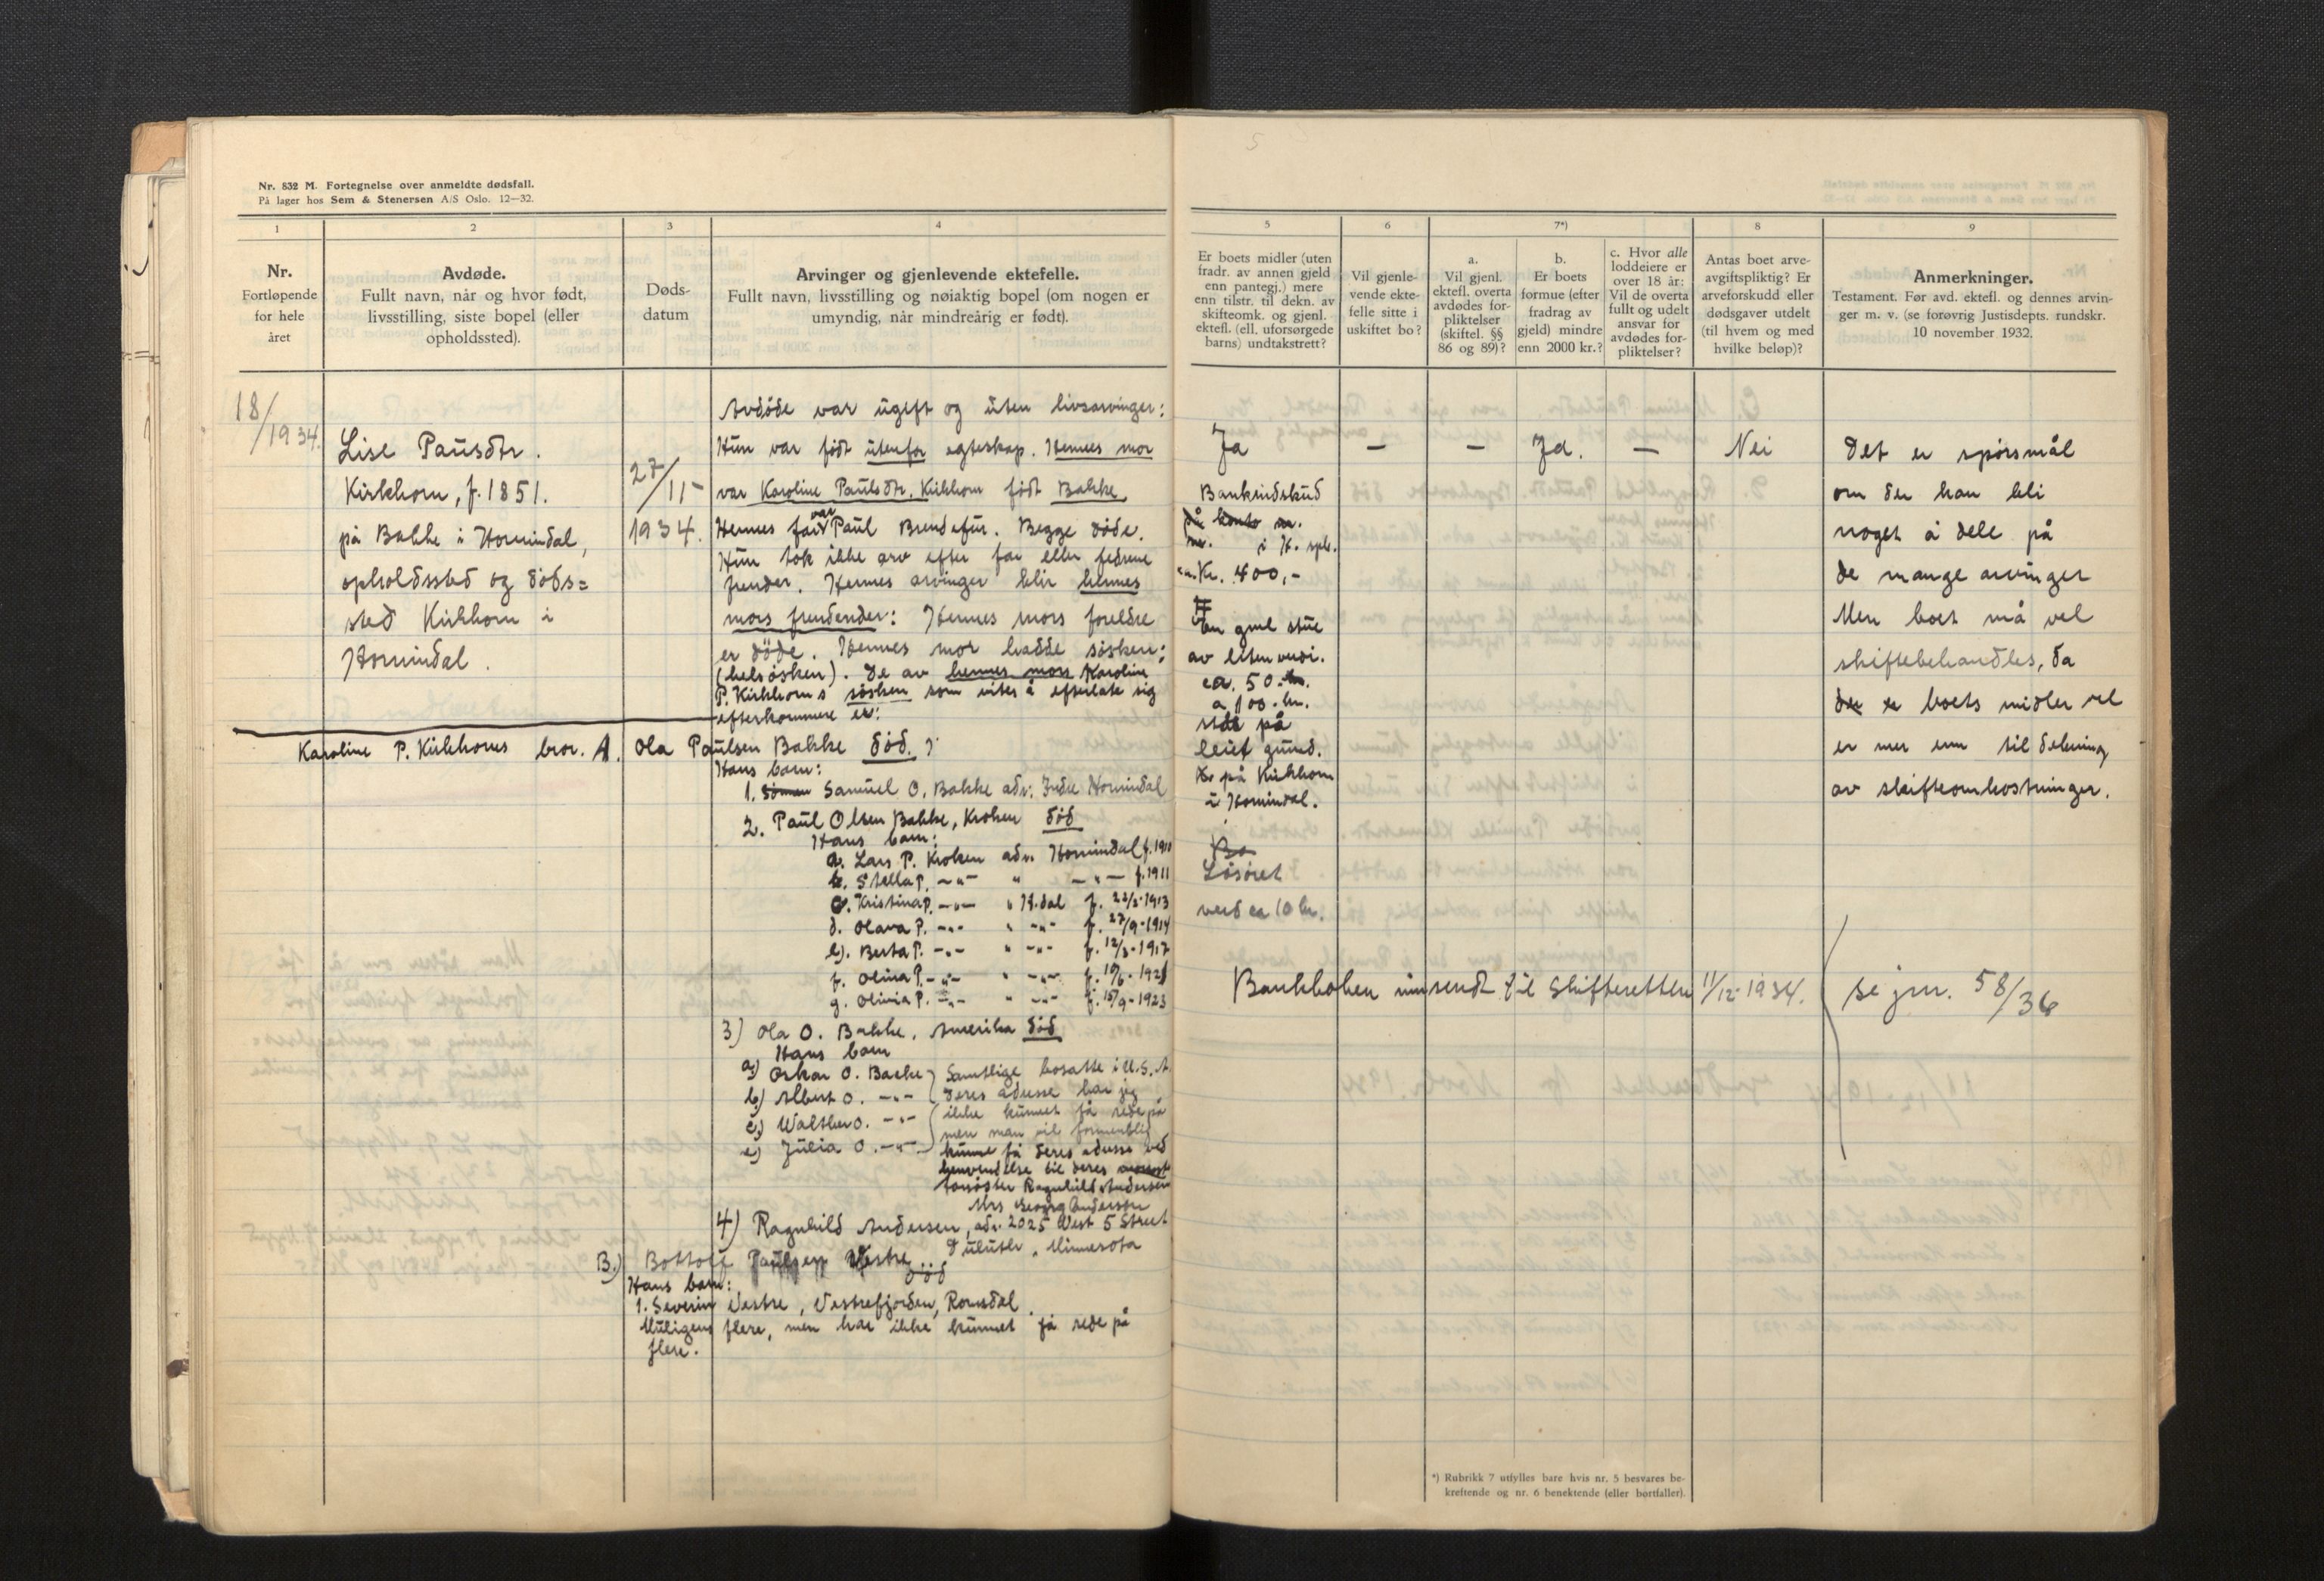 Nr. 832 M. Fortegnelse over anmeldte dødsfall.
På lager hos Sem & Stenersen A/S Oslo. 12—32.
1
2
3
4
Nr.
Fortløpende
for hele
året
Avdøde.
Fullt navn, når og hvor født,
livsstilling, siste bopel (eller
opholdssted).
Døds-
datum
Arvinger og gjenlevende ektefelle.
Fullt navn, livsstilling og nøiaktig bopel (om nogen er
umyndig, når mindreårig er født).
18/
1934.
Lise Paulsdtr.
Kirkhorn, f. 1851.
på Bakke i Hornindal,
opholdssted og døds=
sted Kirkhorn i
Hornindal.
27/11
1934.
Avdøde var ugift og uten livsarvinger:
Hun var født utenfor egteskap. Hennes mor
var Karoline Paulsdtr. Kirkhorn født Bakke
Hennes far var Paul Brendefur. Begge døde.
Hun tok ikke arv efter far eller fedrene
frender. Hennes arvinger blir hennes
mors frendender: Hennes mors foreldre
er døde. Hennes mor hadde søsken:
(helsøsken). De av hennes mors Karoline
P. Kirkhorns søsken som vites å efterlate sig
efterkommere er:
Karoline P. Kirkhorns bror. A. Ola Paulsen Bakke død.
Hans barn:
1. Samuel O. Bakke adr: Indre Hornindal
2. Paul Olsen Bakke, Kroken død
Hans barn:
a. Lars P. Kroken adr. Hornindal f. 1910
b. Stella P. —"— " —"— f. 1911
c. Kristina P. —"— " H.dal f. 22/2-1913
d. Olava P. —"— " —"— f. 27/9-1914
e). Berta P. —"— " —"— f. 12/3-1917
f. Olina P. —"— " —"— f. 10/6-1921
g. Olivia P. —"— " —"— f. 15/9-1923
3) Ola O. Bakke, Amerika død
Hans barn
a) Oskar O. Bakke
b) Albert O. —"—
c) Walther O. —"—
e) Julia O. —"—
Samtlige bosatte i U.S.A
Deres adresse har jeg
ikke kunnet få rede på
men man vil formentlig
kunne få deres adresse ved
henvendelse til deres
farsøster Ragnhild Andersen
Mrs Georg Anderson
4) Ragnhild Andersen, adr. 2025 West 5 Street
Duluth, Minnesota
B.) Bottolf Paulsen Vestre død
Hans barn:
1. Severin Vestre, Vestrefjorden, Romsdal
Muligens flere, men har ikke kunnet få rede på
flere.
5
6
7*)
8
9
Er boets midler (uten
fradr. av annen gjeld
enn pantegj.) mere
enn tilstr. til dekn. av
skifteomk. og gjenl.
ektefl. (ell. uforsørgede
barns) undtakstrett?
Vil gjenle-
vende ekte-
felle sitte i
uskiftet bo?
a.
Vil gjenl.
ektefl. overta
avdødes for-
pliktelser
(skiftel. §§
86 og 89)?
b.
Er boets
formue (efter
fradrag av
gjeld) mindre
enn 2000 kr.?
c. Hvor alle
loddeiere er
over 18 år:
Vil de overta
fullt og udelt
ansvar for
avdødes for-
pliktelser?
Antas boet arve-
avgiftspliktig? Er
arveforskudd eller
dødsgaver utdelt
(til hvem og med
hvilke beløp)?
Anmerkninger.
Testament. Før avd. ektefl. og dennes arvin-
ger m. v. (se forøvrig Justisdepts. rundskr.
10 november 1932.
Ja
— — Ja. — Nei
Bankindskud
på konto nr.
i H. spb.
ca. Kr. 400,-
En gml stue
av liten verdi.
ca. 50. kr.
a 100. kr.
står på
leiet grund.
på Kirkhorn
i Hornindal.
Løsøret
verd ca 10 kr.
Det er spørsmål
om der kan bli
noget å dele på
de mange arvinger
Men boet må vel
skiftebehandles, da
der er boets midler vel
er mer enn til dekning
av skifteomkostninger.
Bankboken innsendt til Skifteretten 11/12-1934.
se jnr. 58/36
*) Rubrikk 7 utfylles bare hvis nr. 5 besvares be-
kreftende og nr. 6 benektende (eller bortfaller).